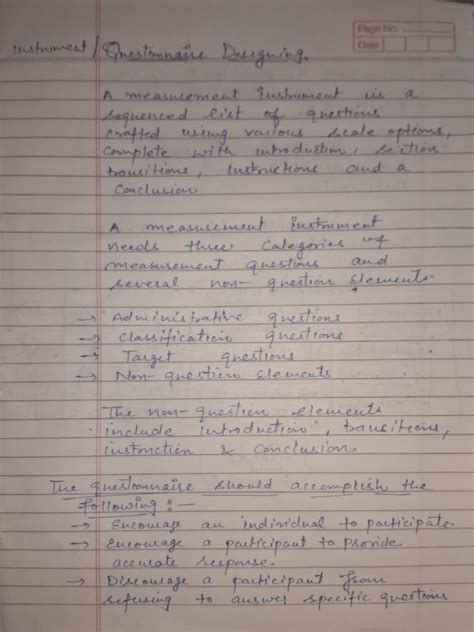 Page No.
Date
Instrument / Questionnaire Designing.
A measurement Instrument is a
sequenced list of questions
crafted using various scale options,
complete with introduction, section
transitions, instructions and a
Conclusion
A measurement Instrument
needs three Categories of
measurement questions and
several non-question Elements.
→ Administrative questions
→ Classification questions
→ Target questions
→ Non-question Elements
The non-question elements
include introduction, transitions,
instruction & Conclusion.
The questionnaire should accomplish the
following :-
→ Encourage an individual to participate.
→ Encourage a participant to provide
accurate response.
→ Discourage a participant from
refusing to answer specific questions